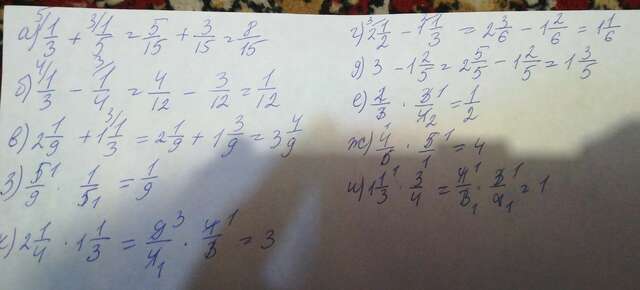 а) 5/1/3 + 3/1/5 = 5/15 + 3/15 = 8/15
б) 4/1/3 - 3/1/4 = 4/12 - 3/12 = 1/12
в) 2 1/9 + 1 3/1/3 = 2 1/9 + 1 3/9 = 3 4/9
з) 5 1/9 · 1/5 1 = 1/9
к) 2 1/4 · 1 1/3 = 9 3/4 1 · 4 1/3 = 3
г) 3/2 1/2 - 1 1/3 = 2 3/6 - 1 2/6 = 1 1/6
д) 3 - 1 2/5 = 2 5/5 - 1 2/5 = 1 3/5
е) 2/3 · 3 1/4 2 = 1/2
ж) 4/5 · 5 1/1 = 4
и) 1 1/3 · 3/4 = 4 1/3 1 · 3 1/4 1 = 1